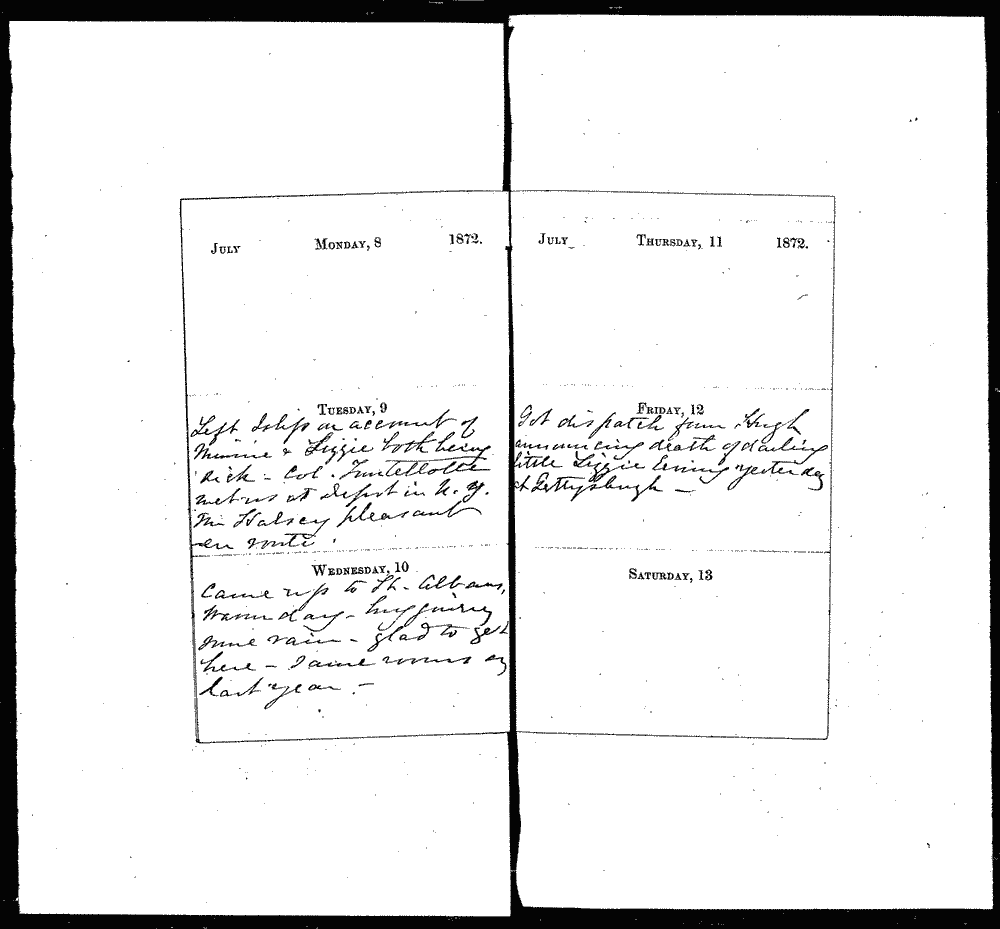 JULY MONDAY, 8 1872.
TUESDAY, 9
Left Islip on account of
Minnie & Lizzie both being
sick - Col.
met us at depot in N. Y.
Halsey pleasant
en route.
WEDNESDAY, 10
Came up to St. Albans,
warm day -
some rain - glad to get
here - Same rooms as
last year -
JULY THURSDAY, 11 1872.
FRIDAY, 12
Got dispatch from Hugh
announcing death of darling
little Lizzie Ewing yesterday
at Gettysburgh -
SATURDAY, 13